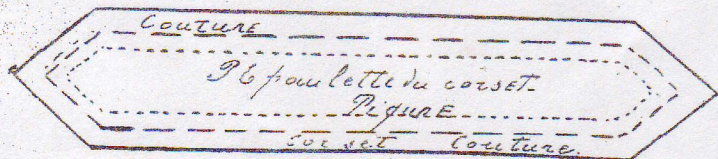 Couture
L'Epaulette du corset.
Piqure
Corset Couture.